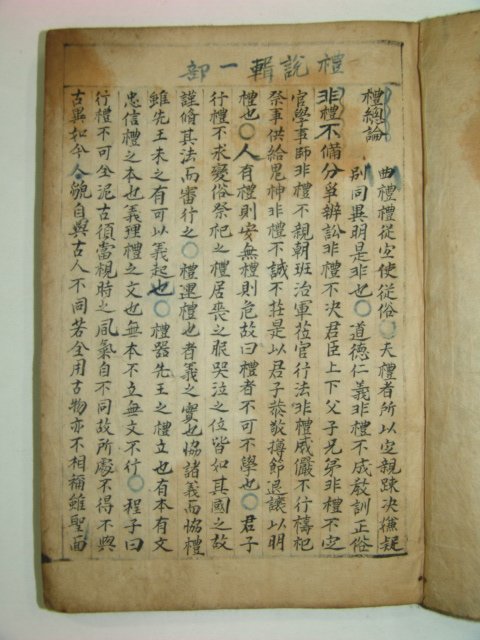 禮說輯一部
禮總論
曲禮禮從宜使從俗○夫禮者所以定親疎決嫌疑
別同異明是非也○道德仁義非禮不成敎訓正俗
非禮不備分爭辨訟非禮不決君臣上下父子兄弟非禮不定
官學事師非禮不親朝班治軍莅官行法非禮威嚴不行禱祀
祭事供給鬼神非禮不誠不莊是以君子恭敬撙節退讓以明
禮也○人有禮則安無禮則危故曰禮者不可不學也○君子
行禮不求變俗祭祀之禮居喪之服哭泣之位皆如其國之故
謹脩其法而審行之○禮運禮也者義之實也協諸義而協禮
雖先王未之有可以義起也○禮器先王之禮立也有本有文
忠信禮之本也義理禮之文也無本不立無文不行○程子曰
行禮不可全泥古須當視時之風氣自不同故所處不得不與
古異如今人貌自與古人不同若全用古物亦不相稱雖聖